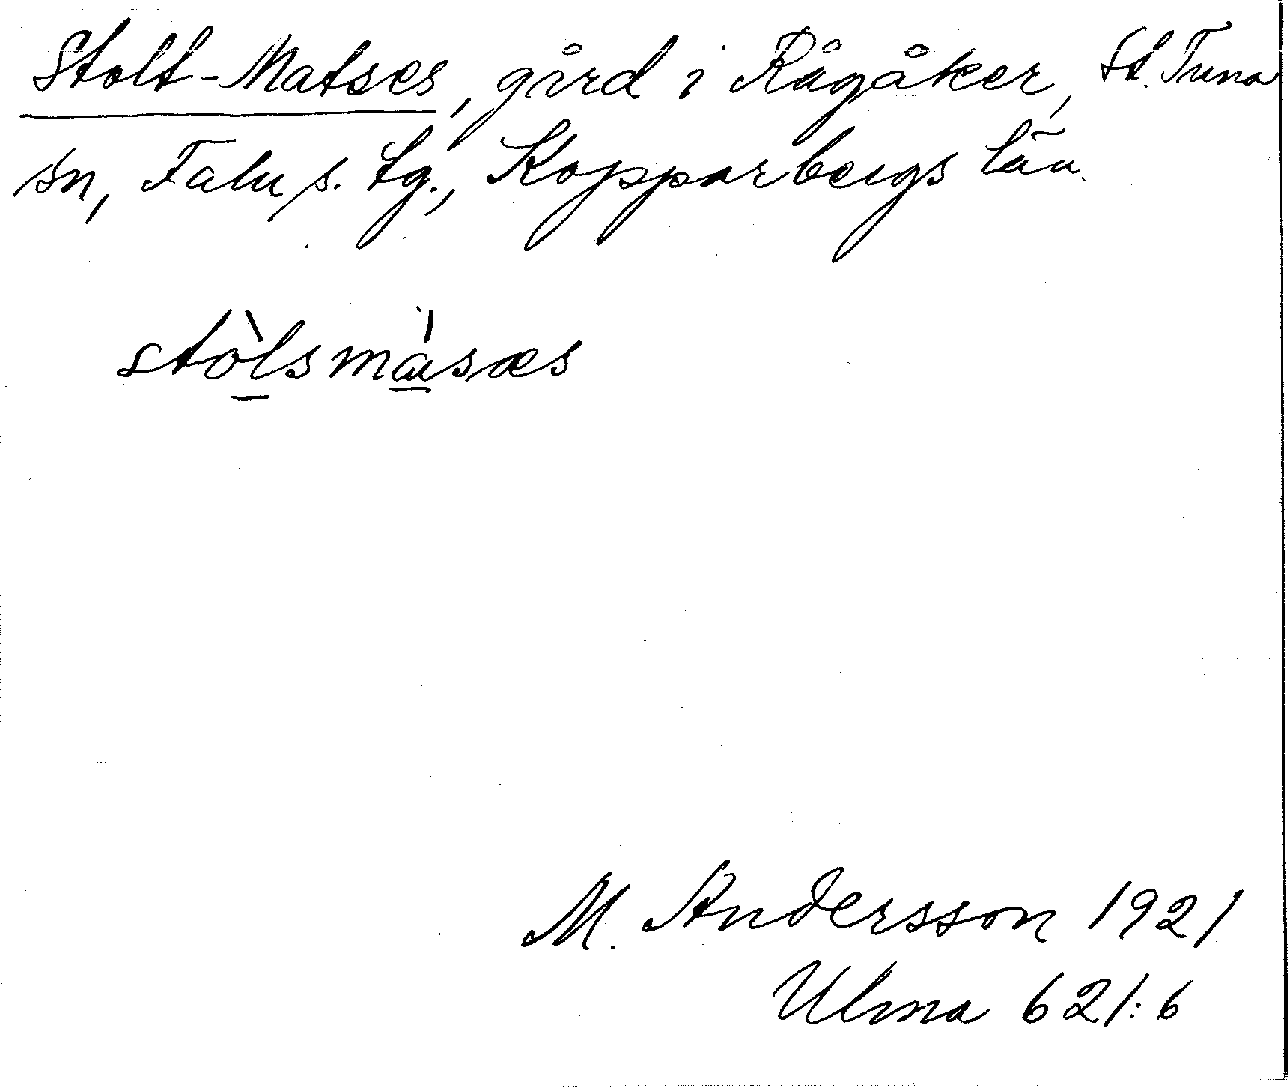 Stolt-Matses, gård i Rågåker, St. Tuna
sn, Falu s. tg., Kopparbergs län.
stòlsmásæs
M. Andersson 1921
Ulma 621:6